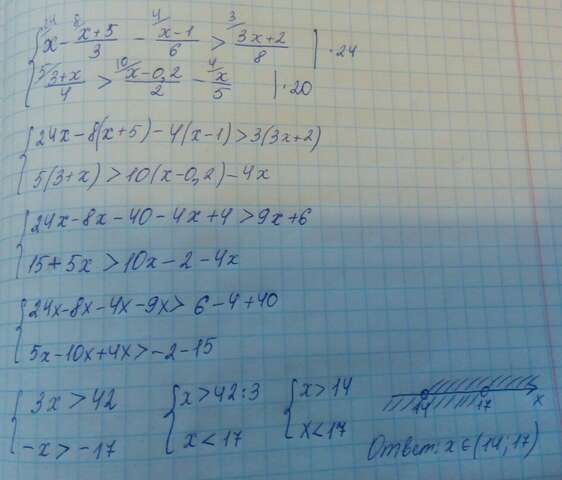 { 24/ x - 8/ (x+5)/3 - 4/ (x-1)/6 > 3/ (3x+2)/8 | ·24
{ 5/ (3+x)/4 > 10/ (x-0,2)/2 - 4/ x/5 | ·20
{ 24x-8(x+5)-4(x-1)>3(3x+2)
{ 5(3+x)>10(x-0,2)-4x
{ 24x-8x-40-4x+4>9x+6
{ 15+5x>10x-2-4x
{ 24x-8x-4x-9x> 6-4+40
{ 5x-10x+4x>-2-15
{ 3x>42 { x>42:3 { x>14
{ -x>-17 { x<17 { x<17
14 17 x
Ответ: x∈(14;17)